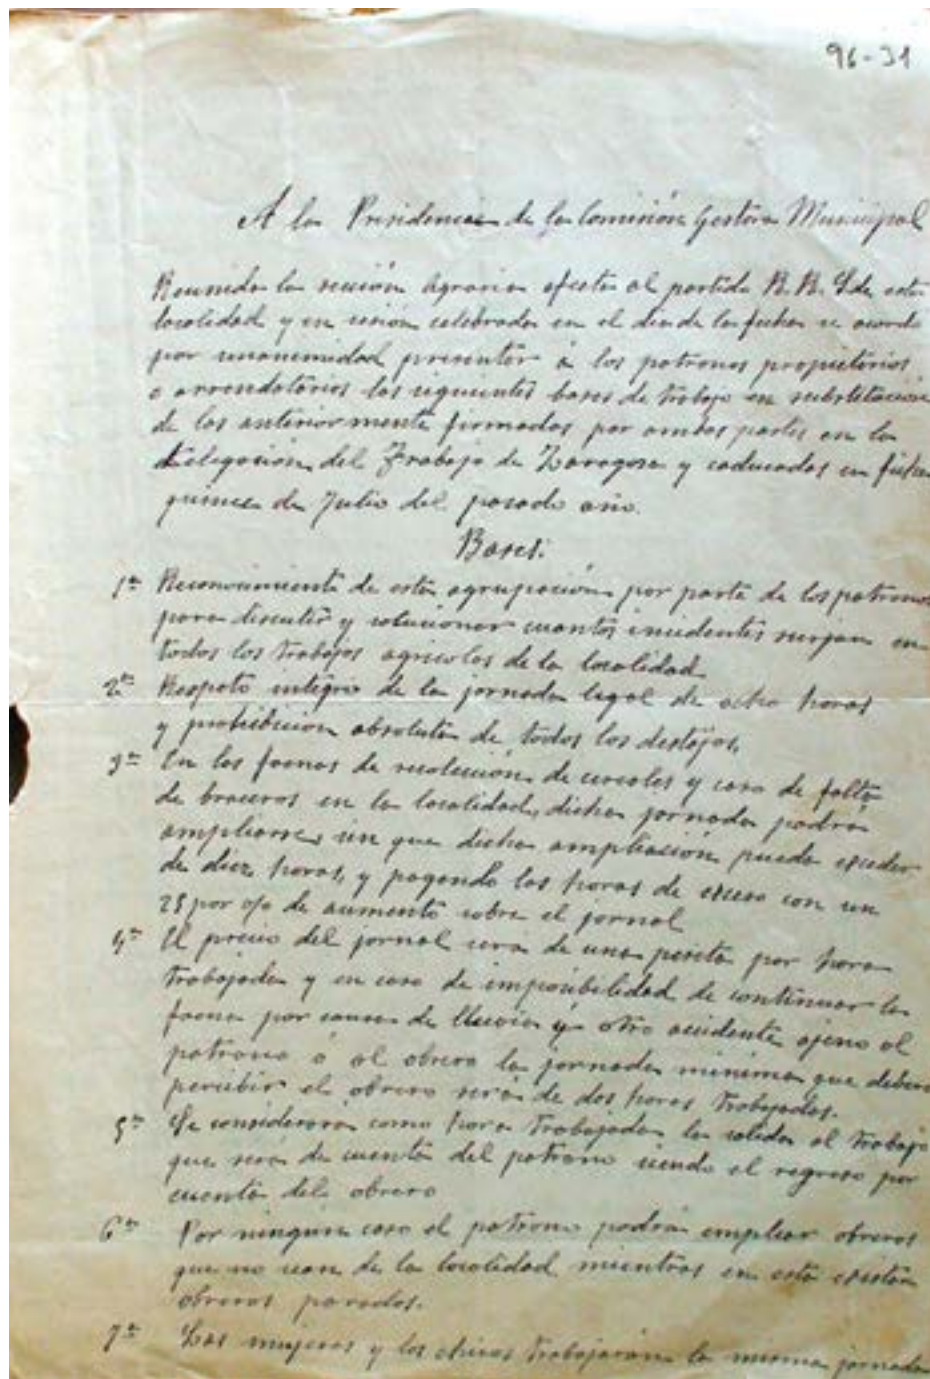 96-31
A la Presidencia de la Comisión Gestora Municipal
Reunida la sección Agraria afecta al partido R. R. S. de esta
localidad y en sesión celebrada en el dia de la fecha se acordó
por unanimidad presentar á los patronos propietarios
o arrendatarios las siguientes bases de trabajo en substitución
de las anteriormente firmadas por ambas partes en la
Delegación del Trabajo de Zaragoza y caducadas en fecha
quince de Julio del pasado año.
Bases:
1ª Reconocimiento de esta agrupación por parte de los patronos
para discutir y solucionar cuantos incidentes surjan en
todos los trabajos agricolas de la localidad
2ª Respeto integro de la jornada legal de ocho horas
y prohibicion absoluta de todos los destajos,
3ª En las faenas de recolección de cereales y caso de falta
de braceros en la localidad, dicha jornada podrá
ampliarse, sin que dicha ampliación pueda exceder
de diez horas, y pagando las horas de exceso con un
25 por o/o de aumento sobre el jornal
4ª El precio del jornal será de una peseta por hora
trabajada y en caso de imposibilidad de continuar la
faena por causa de lluvia ú otro accidente ajeno al
patrono ó al obrero la jornada minima que debera
percibir el obrero será de dos horas trabajadas.
5ª Se considerará como hora trabajada la salida al trabajo
que será de cuenta del patrono siendo el regreso por
cuenta del obrero
6ª Por ningun caso el patrono podrá emplear obreros
que no sean de la localidad mientras en esta existan
obreros parados.
7ª Las mujeres y los chicos trabajarán la misma jornada